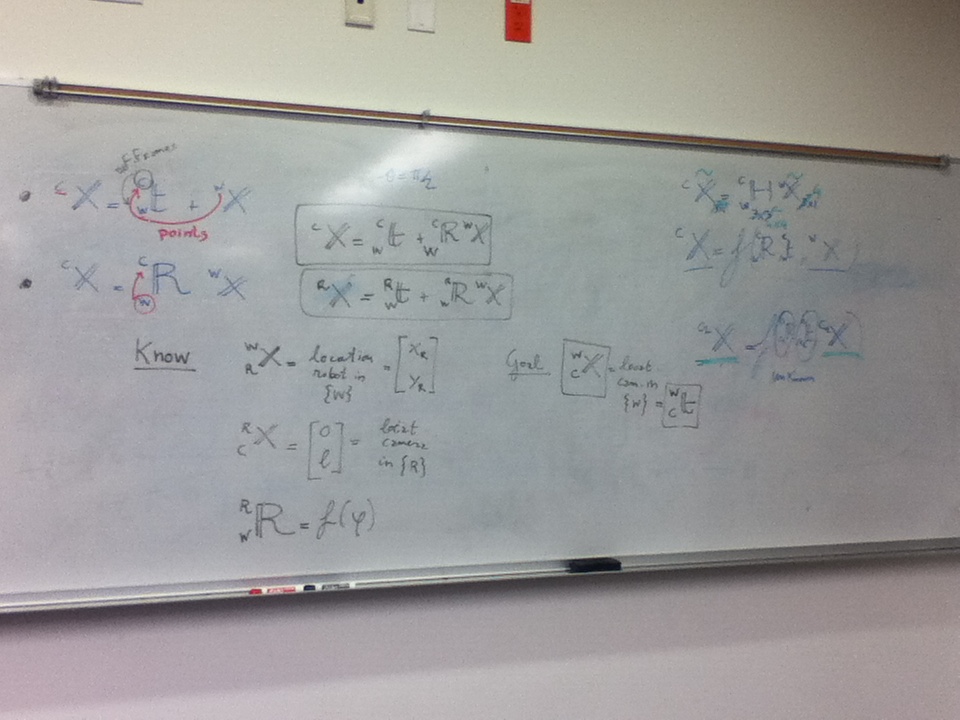 of frames
• ᶜX = ᶜ_W t + ʷX
points
• ᶜX = ᶜ_W R ʷX
θ = π/2
ᶜX = ᶜ_W t + ᶜ_W R ʷX
ᴿX = ᴿ_W t + ᴿ_W R ʷX
Know
ᵂ_R X = location robot in {W} = [X_R Y_R]
ᴿ_C X = [0 l] = locat camera in {R}
ᴿ_W R = f(φ)
Goal
ᵂ_C X = locat cam. in {W} = ᵂ_C t
ᶜX̃ = ᶜH ʷX̃
ᶜX = f(R, t, ʷX)
X = f( X)
unknown